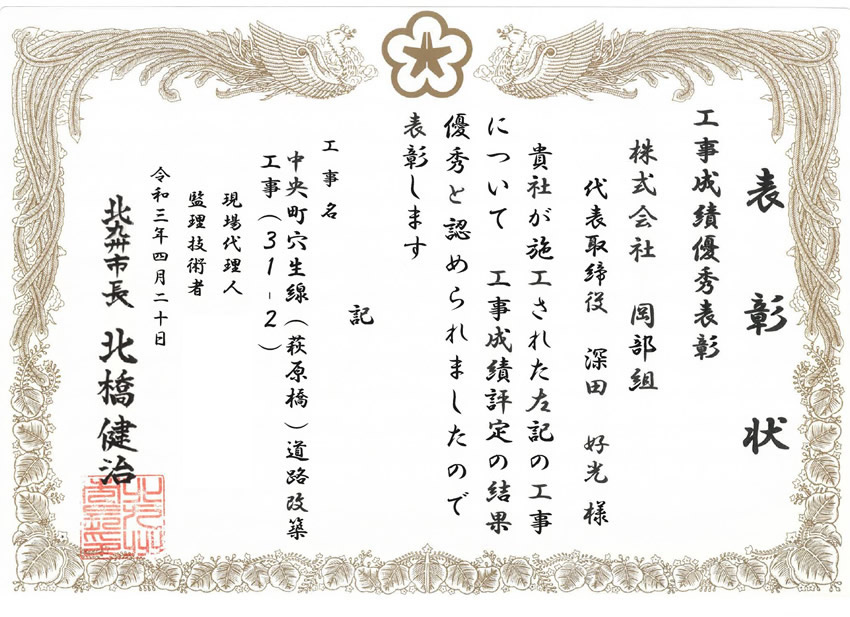 表彰状
工事成績優秀表彰
株式会社 岡部組
代表取締役 深田 好光 様
貴社が施工された左記の工事
について 工事成績評定の結果
優秀と認められましたので
表彰します
記
工事名
中央町穴生線（萩原橋）道路改築
工事（31-2）
現場代理人
監理技術者
令和三年四月二十日
北九州市長 北橋健治